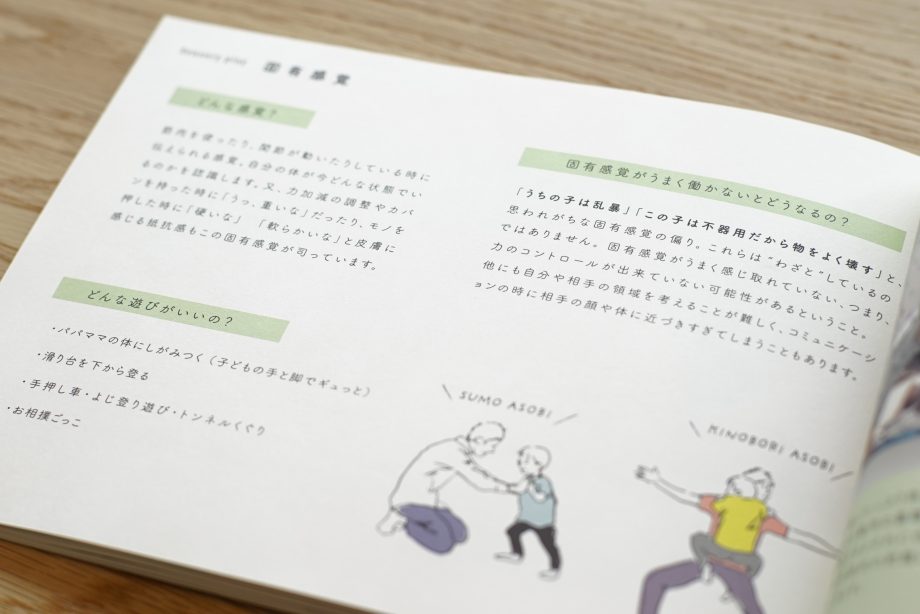 固有感覚
どんな感覚？
筋肉を使ったり、関節が動いたりしている時に
伝えられる感覚。自分の体が今どんな状態でい
るのかを認識します。又、力加減の調整やカバ
ンを持った時に「うっ、重いな」だったり、モノを
押した時に「硬いな」　「軟らかいな」と皮膚に
感じる抵抗感もこの固有感覚が司っています。
どんな遊びがいいの？
・パパママの体にしがみつく（子どもの手と脚でギュっと）
・滑り台を下から登る
・手押し車・よじ登り遊び・トンネルくぐり
・お相撲ごっこ
固有感覚がうまく働かないとどうなるの？
「うちの子は乱暴」「この子は不器用だから物をよく壊す」と、
思われがちな固有感覚の偏り。これらは“わざと”しているの
ではありません。固有感覚がうまく感じ取れていない、つまり、
力のコントロールが出来ていない可能性があるということ。
他にも自分や相手の領域を考えることが難しく、コミュニケーシ
ョンの時に相手の顔や体に近づきすぎてしまうこともあります。
SUMO ASOBI
KINOBORI ASOBI